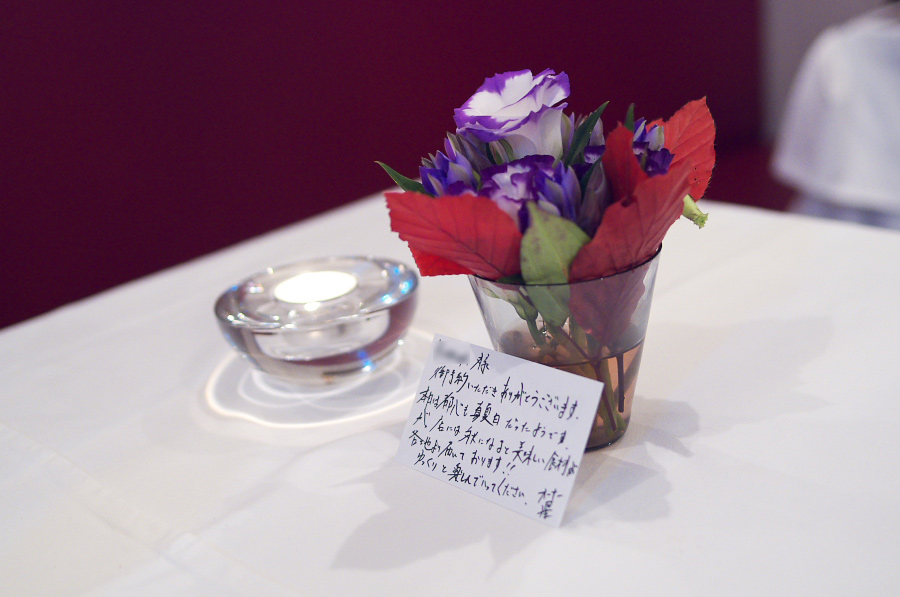 様
御予約いただきありがとうございます。
本日は都心も真夏日だったようですが
店には秋になると美味しい食材が
各地より届いております!!
ゆっくりと楽しんでいってください。
オーナー